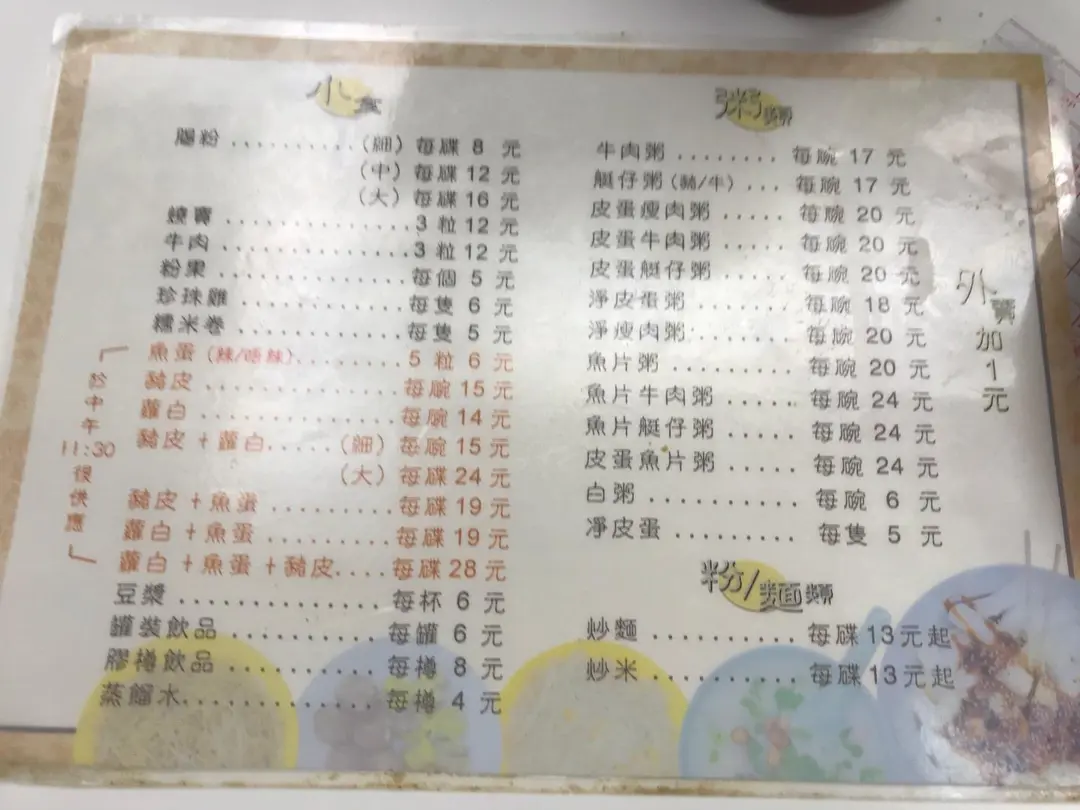 小食
腸粉 .......... (細) 每碟 8 元
(中) 每碟 12 元
(大) 每碟 16 元
燒賣 .............. 3 粒 12 元
牛肉 .............. 3 粒 12 元
粉果 .............. 每個 5 元
珍珠雞 ............ 每隻 6 元
糯米卷 ............ 每隻 5 元
魚蛋 (辣/唔辣) ........ 5 粒 6 元
豬皮 .............. 每碗 15 元
蘿白 .............. 每碗 14 元
豬皮 + 蘿白 ..... (細) 每碗 15 元
(大) 每碟 24 元
豬皮 + 魚蛋 ......... 每碟 19 元
蘿白 + 魚蛋 ......... 每碟 19 元
蘿白 + 魚蛋 + 豬皮 .... 每碟 28 元
豆漿 .............. 每杯 6 元
罐裝飲品 ........... 每罐 6 元
膠樽飲品 ........... 每樽 8 元
蒸餾水 ............. 每樽 4 元
「於中午11:30後供應」
粥類
牛肉粥 ........ 每碗 17 元
艇仔粥 (豬/牛) ... 每碗 17 元
皮蛋瘦肉粥 ..... 每碗 20 元
皮蛋牛肉粥 ..... 每碗 20 元
皮蛋艇仔粥 ..... 每碗 20 元
淨皮蛋粥 ....... 每碗 18 元
淨瘦肉粥 ....... 每碗 20 元
魚片粥 ......... 每碗 20 元
魚片牛肉粥 ..... 每碗 24 元
魚片艇仔粥 ..... 每碗 24 元
皮蛋魚片粥 ..... 每碗 24 元
白粥 .......... 每碗 6 元
淨皮蛋 ......... 每隻 5 元
粉/麵類
炒麵 .......... 每碟 13 元起
炒米 .......... 每碟 13 元起
外賣加1元